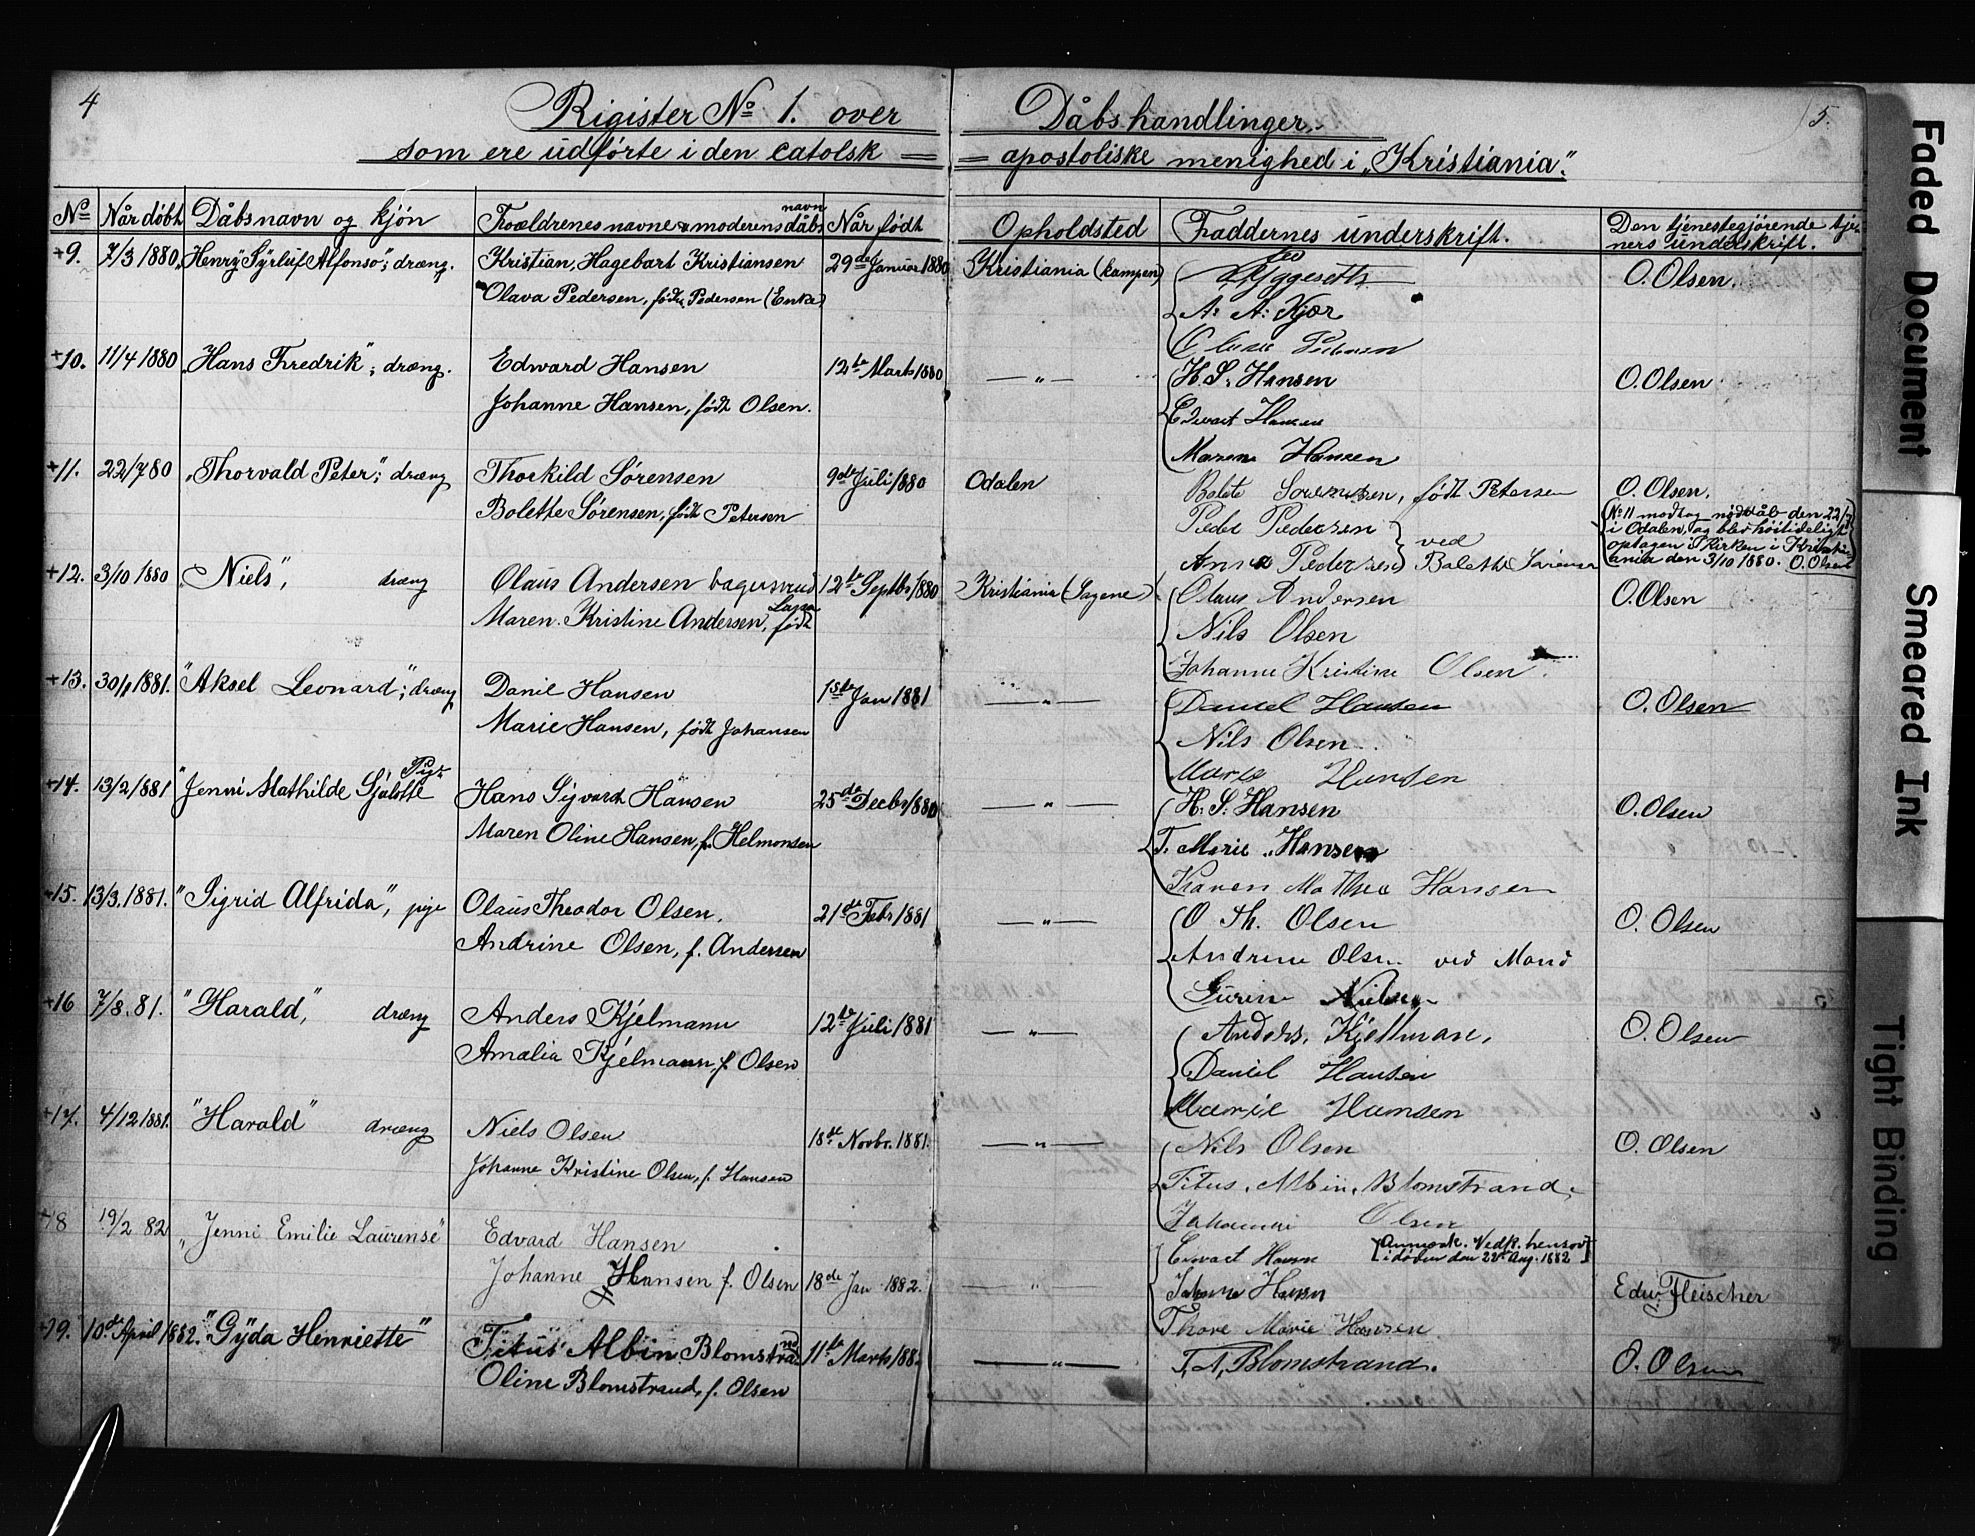 4
5.
Rigister No 1. over Dåbshandlinger.
som ere udførte i den catolsk = = apostoliske menighed i „Kristiania“.
No Når døbt Dåbsnavn og kjön Forældrenes navne & moderens dåbsnavn Når født Opholdsted Faddernes underskrift. Den tjenestegjørende tjeners underskrift.
+9. 7/3 1880 „Henry Syrluf Alfonso“; dræng. Kristian, Hagebart Kristiansen 29de Januar 1880 Kristiania (kampen) O. Olsen.
Olava Pedersen, født Pedersen (Enke)
A. A. Kjær
+10. 11/4 1880 „Hans Fredrik“; dræng. Edward Hansen 12te Marts 1880 — „ — H. S. Hansen O. Olsen
Johanne Hansen, født Olsen. Edvart Hansen
Maren Hansen
+11. 22/7 80 „Thorvald Peter“; dræng Thorkild Sørensen 9de Juli 1880 Odalen Bolete Sorensen, født Petersen O. Olsen.
Bolette Sørensen, født Petersen Peder Pedersen
Anna Pedersen } ved Bolette Sørensen
No 11 modtog nøddåb den 22/7
i Odalen, og blev høitideligt
optagen i Kirken i Kristi-
ania den 3/10 1880. O. Olsen
+12. 3/10 1880 „Niels“, dræng Olaus Andersen 12te Septbr 1880 Kristiania (Sagene) Olaus Andersen O. Olsen
Maren Kristine Andersen, født Nils Olsen
Johanne Kristine Olsen.
+13. 30/1 1881. "Aksel Leonard“; dræng Danil Hansen Jan 1881 — „ — Daniel Hansen O. Olsen
Marie Hansen, født Johansen Nils Olsen
Marie Hansen
+14. 13/2 1881 "Jenni Mathilde Sjalotte Pige Hans Sigvardt Hansen 25de Decbr 1880 — „ — H. S. Hansen O. Olsen
Maren Oline Hansen, f. Helmonsen T. Marie Hansen
Karen Mathea Hansen
+15. 13/3. 1881. "Sigrid Alfrida“, pige Olaus Theodor Olsen. 21de Febr 1881 — „ — O Th. Olsen O. Olsen
Andrine Olsen, f. Andersen Andrine Olsen ved Mand
Gurine Nielsen
+16 7/8. 81. "Harald“, dræng Anders Kjelmann 12te Juli 1881 — „ — Anders, Kjellman, O. Olsen
Amalia Kjelmann, f. Olsen Daniel Hansen
Marie Hansen
+17. 4/12 1881. "Harald“ dræng Niels Olsen 18de Novbr. 1881. — „ — Nils Olsen O. Olsen
Johanne Kristine Olsen, f. Hansen Titus. Albin. Blomstrand.
Johanne Olsen
+18 19/2 82 „Jenni Emilie Laurense“ Edvard Hansen Edvart Hansen [Anmærk. Vedk.
i døden den 22de Aug. 1882]
Johanne Hansen f. Olsen 18de Jan 1882. — „ — Johanne Hansen Edw. Fleischer
Thore Marie Hansen
+19. 10de April 1882. "Gyda Henriette“ Titus Albin Blomstrand 11te Marts 1882 — „ — T. A. Blomstrand. O. Olsen
Oline Blomstrand, f. Olsen
Faded Document
Smeared Ink
Tight Binding